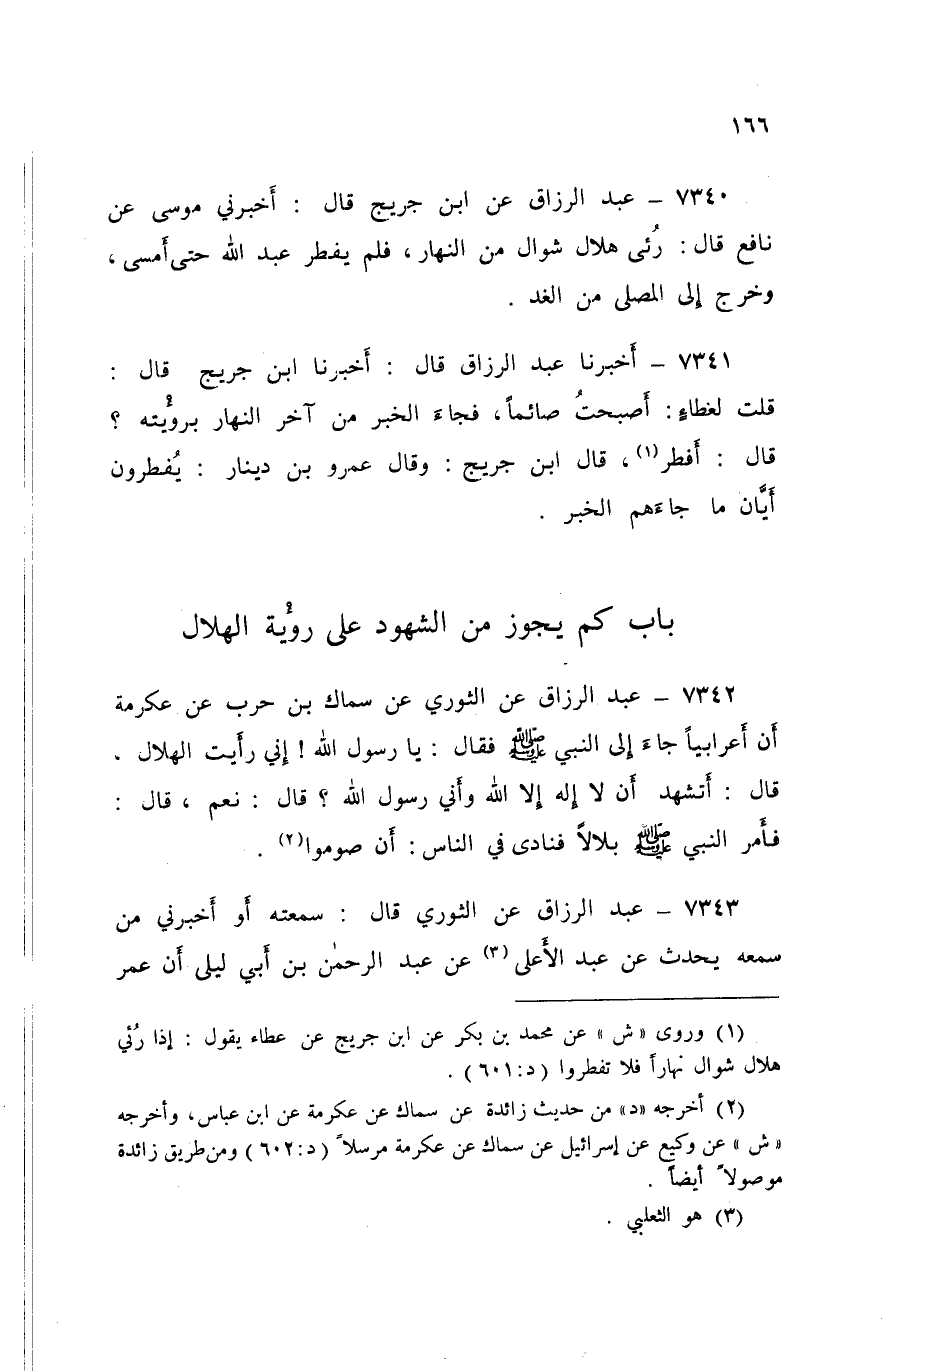 ١٦٦
٧٣٤٠ – عبد الرزاق عن ابن جريج قال : أخبرني موسى عن
نافع قال : رُئى هلال شوال من النهار ، فلم يفطر عبد الله حتى أمسى ،
وخرج إلى المصلى من الغد .
٧٣٤١ – أخبرنا عبد الرزاق قال : أخبرنا ابن جريج قال :
قلت لغطاءٍ : أصبحتُ صائماً ، فجاءَ الخبر من آخر النهار برؤيته ؟
قال : أفطر(١) ، قال ابن جريج : وقال عمرو بن دينار : يُفطرون
أيَّان ما جاءَهم الخبر .
باب كم يجوز من الشهود على رؤية الهلال
٧٣٤٢ – عبد الرزاق عن الثوري عن سماك بن حرب عن عكرمة
أن أعرابياً جاءَ إلى النبي ﷺ فقال : يا رسول الله ! إني رأيت الهلال .
قال : أتشهد أن لا إله إلا الله وأني رسول الله ؟ قال : نعم ، قال :
فأمر النبي ﷺ بلالاً فنادى في الناس : أن صوموا(٢) .
٧٣٤٣ – عبد الرزاق عن الثوري قال : سمعته أو أخبرني من
سمعه يحدث عن عبد الأعلى(٣) عن عبد الرحمٰن بن أبي ليلى أن عمر
(١) وروى «ش» عن محمد بن بكر عن ابن جريج عن عطاء يقول : إذا رُئي
هلال شوال نهاراً فلا تفطروا (د:٦٠١) .
(٢) أخرجه «د» من حديث زائدة عن سماك عن عكرمة عن ابن عباس ، وأخرجه
«ش» عن وكيع عن إسرائيل عن سماك عن عكرمة مرسلاً (د:٦٠٢) ومن طريق زائدة
موصولاً أيضاً .
(٣) هو الثعلبي .